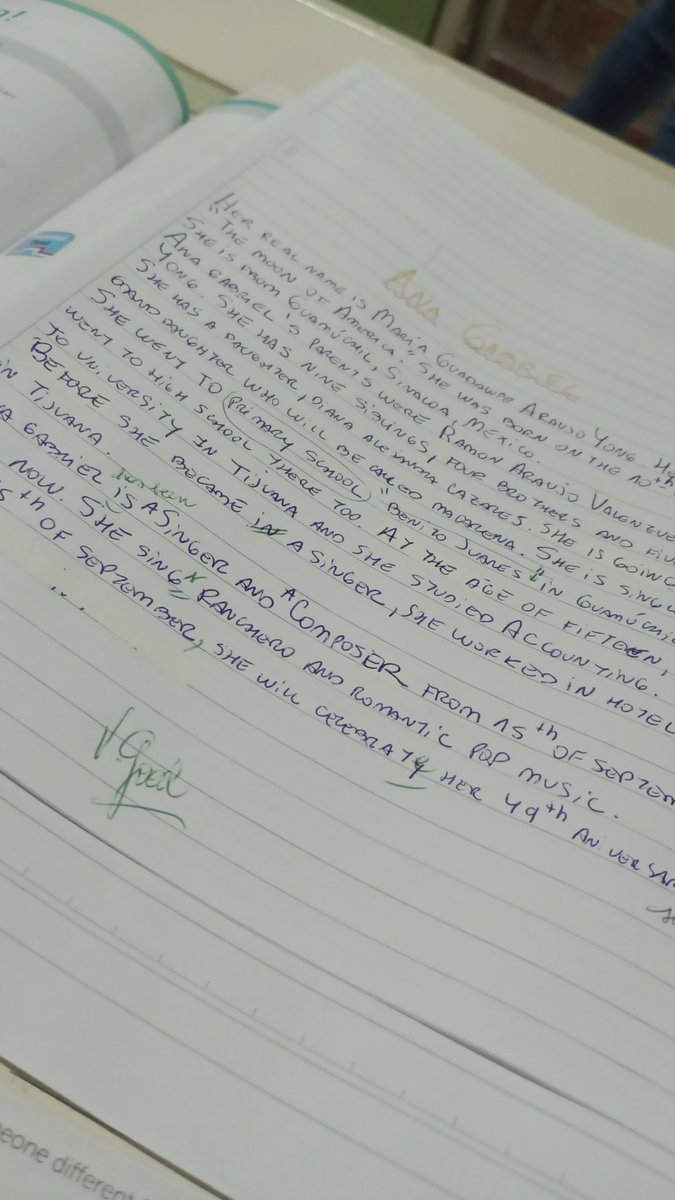 Ana Gabriel
Her real name is María Guadalupe Araujo Yong. He
"The moon of America." She was born on the 10th
She is from Guamúchil, Sinaloa, Mexico.
Ana Gabriel's parents were Ramon Araujo Valenzue
Yong. She has nine siblings, four brothers and five
She has a daughter, Diana Alexandra Cazares. She is going
granddaughter who will be called Macarena. She is singl
She went to primary school "Benito Juares" in Guamúchil
went to high school there too. At the age of fifteen,
to university in Tijuana and she studied Accounting.
Before she became in a singer, she worked in hotel
in Tijuana.
a Gabriel is a singer and a composer from 15th of Septem
has been
now. She sing ranchero and romantic pop music.
5th of September, she will celebrate her 49th aniversar
Good
eone different